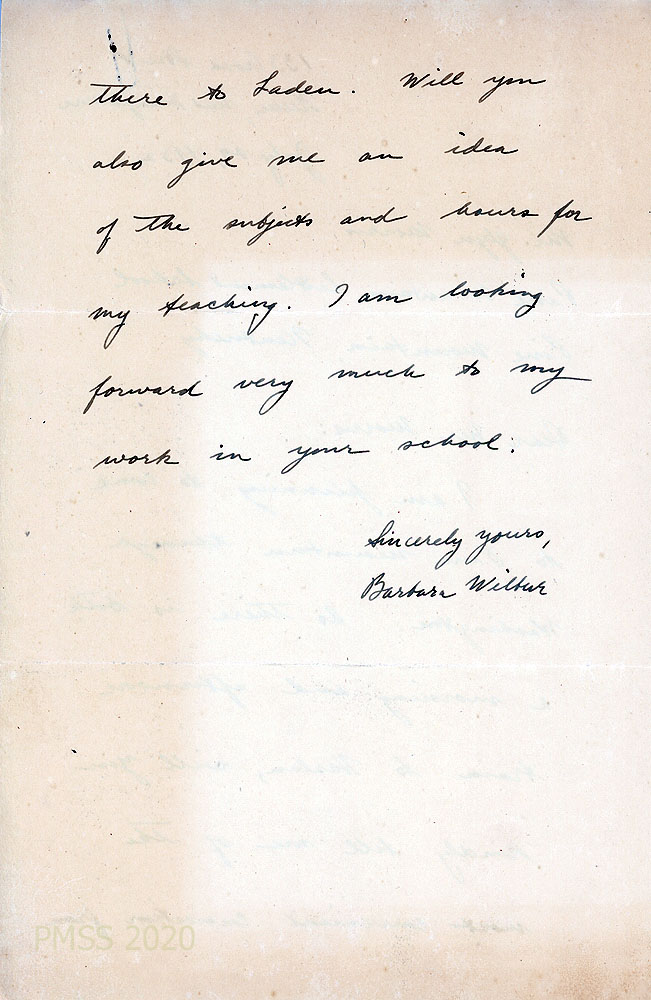 there to Laden. Will you
also give me an idea
of the subjects and hours for
my teaching. I am looking
forward very much to my
work in your school.
Sincerely yours,
Barbara Wilbur
PMSS 2020